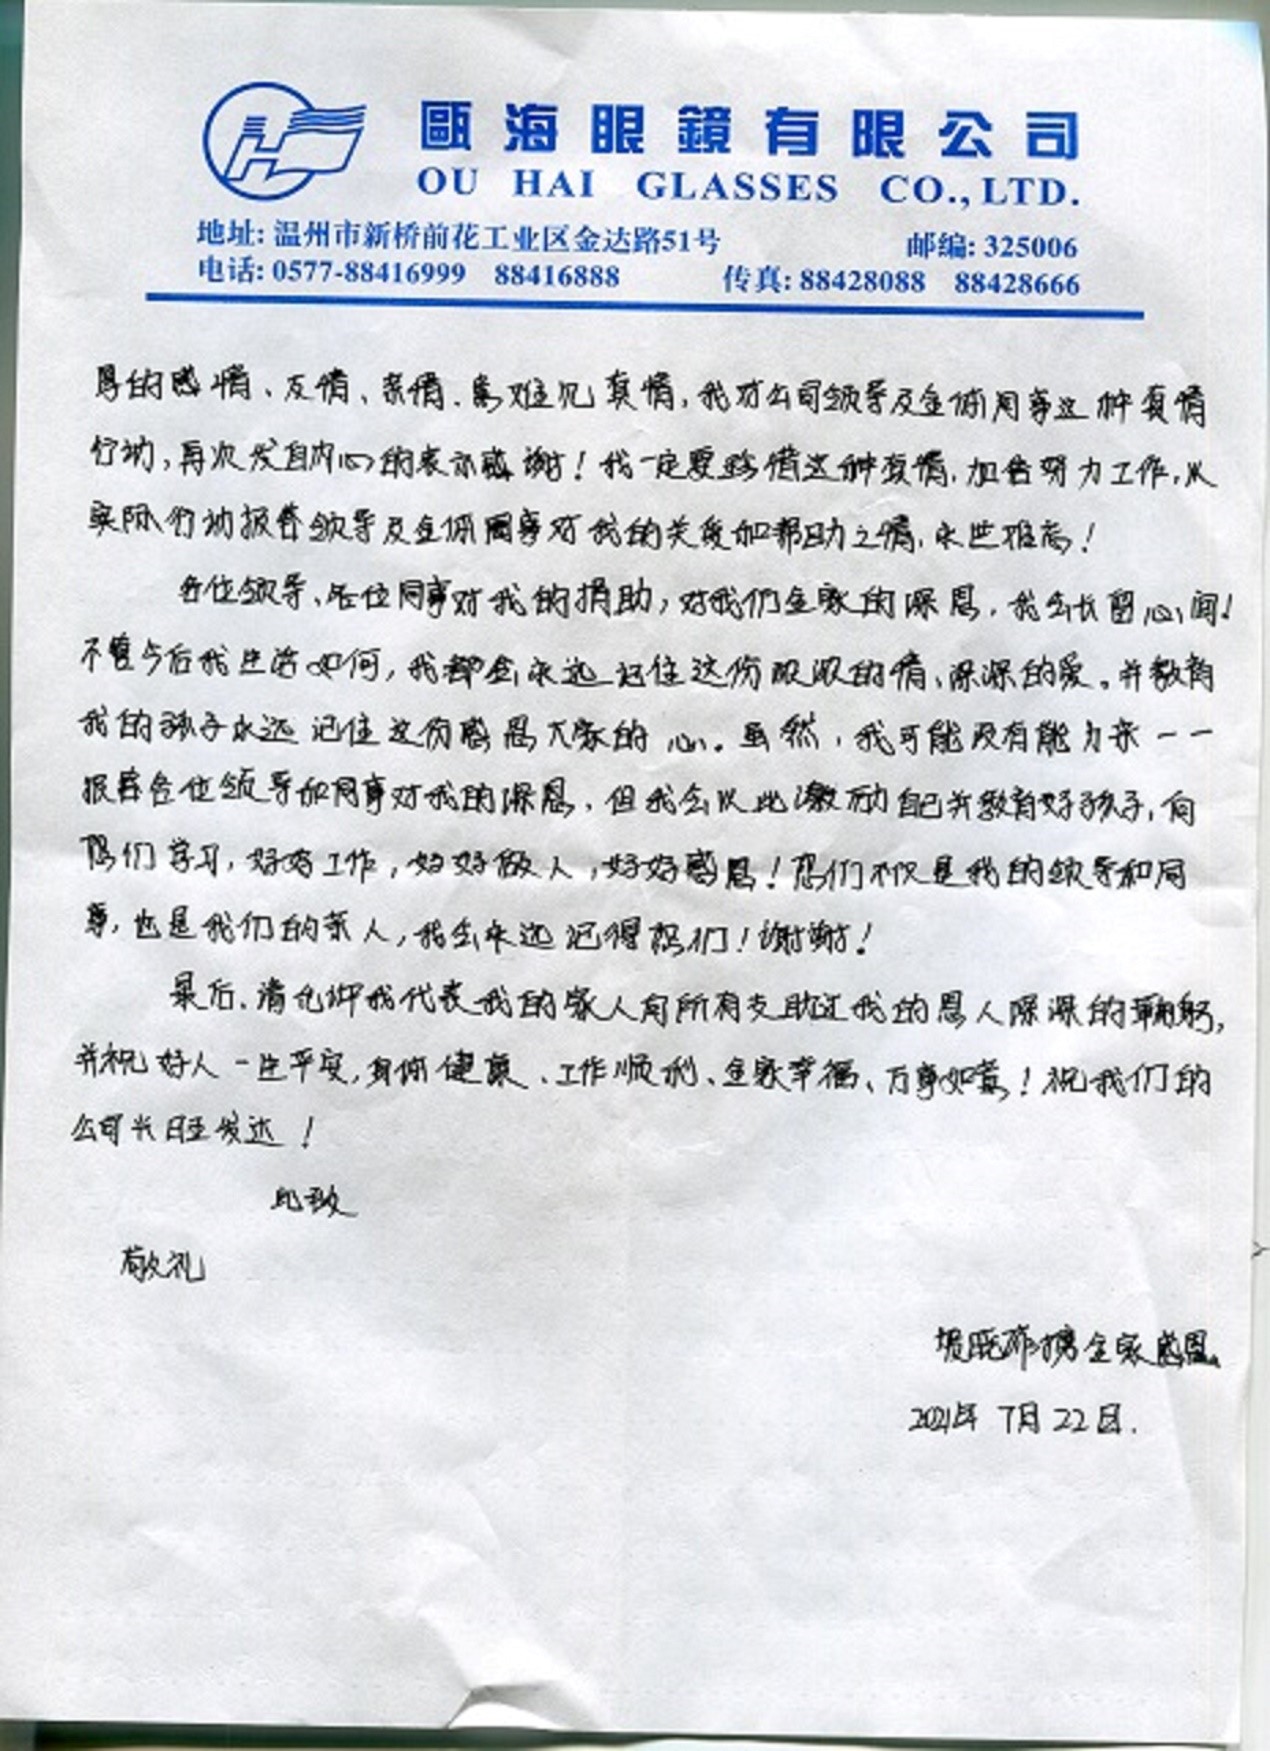 甌海眼鏡有限公司
OU HAI GLASSES CO., LTD.
地址: 温州市新桥前花工业区金达路51号 邮编: 325006
电话: 0577-88416999 88416888 传真: 88428088 88428666
厚的感情、友情、亲情、患难见真情,我对公司领导及全体同事这种真情
行动,再次发自内心的表示感谢!我一定要珍惜这种真情,加倍努力工作,从
实际行动报答领导及全体同事对我的关爱和帮助之情,永世难忘!
各位领导、各位同事对我的捐助,对我们全家的深恩,我会长留心间!
不管今后我生活如何,我都会永远记住这份浓浓的情、深深的爱。并教育
我的孩子永远记住这份感恩大家的心。虽然,我可能没有能力来一一
报答各位领导和同事对我的深恩,但我会以此激励自己并教育好孩子,向
您们学习,好好工作,好好做人,好好感恩!您们不仅是我的领导和同
事,也是我们的亲人,我会永远记得您们!谢谢!
最后,请允许我代表我的家人向所有支助过我的恩人深深的鞠躬,
并祝好人一生平安,身体健康、工作顺利、全家幸福、万事如意!祝我们的
公司兴旺发达!
此致
敬礼
携全家感恩
2021年7月22日.